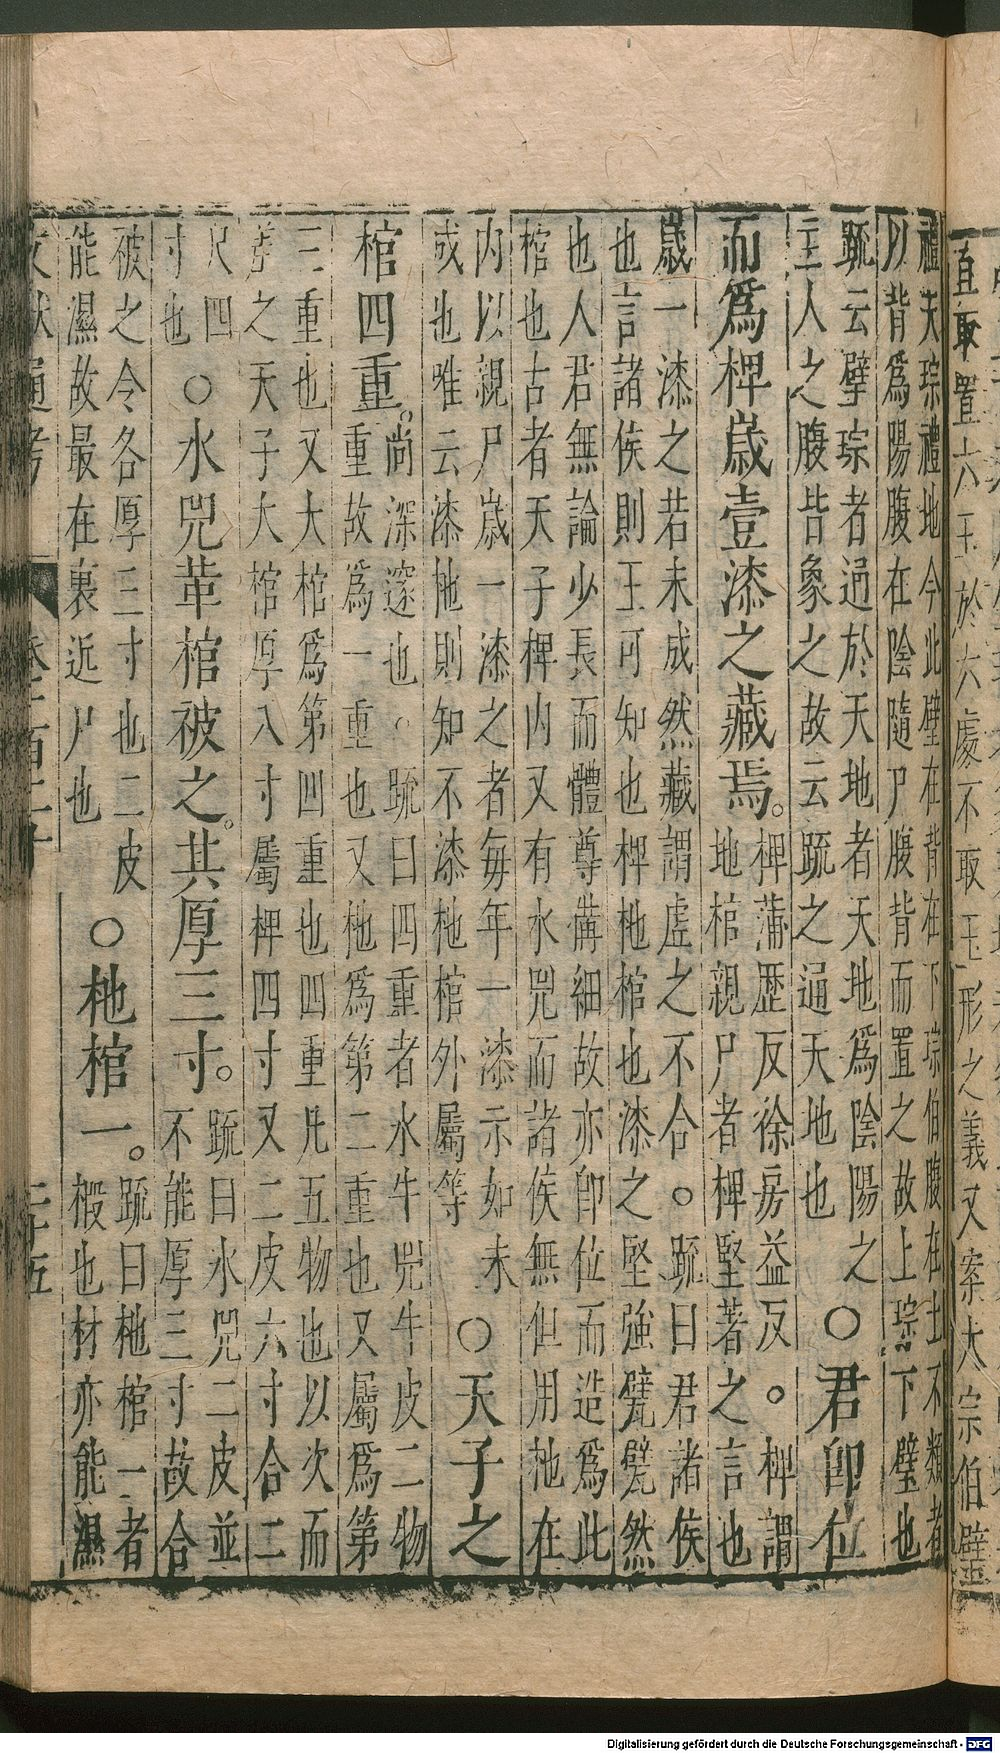 直取置六玉於六處不取玉形之義又案大宗伯璧
禮天琮禮地今此璧在背在下琮伯腹在上不類者
以背爲陽腹在陰隨尸腹背而置之故上琮下璧也
䟽云擘琮者通於天地者天地爲陰陽之
主人之腹皆象之故云䟽之通天地也
○君卽位
而爲椑歲壹漆之藏焉。
椑蒲歷反徐房益反。椑謂
地棺親尸者椑堅著之言也
歲一漆之若未成然藏謂虛之不合。䟽曰君諸侯
也言諸侯則王可知也椑杝棺也漆之堅強甓甓然
也人君無論少長而體尊僃細故亦卽位而造爲此
棺也古者天子椑内又有水兕而諸侯無但用杝在
内以親尸歲一漆之者每年一漆示如未
成也唯云漆杝則知不漆杝棺外屬等
○天子之
棺四重。
尚深邃也。䟽曰四重者水牛兕牛皮二物
重故爲一重也又杝爲第二重也又屬爲第
三重也又大棺爲第四重也四重凡五物也以次而
差之天子大棺厚八寸屬椑四寸又二皮六寸合二
尺四
寸也
○水兕革棺被之。其厚三寸。
䟽曰水兕二皮並
不能厚三寸故合
被之令各厚三寸也二皮
能濕故最在裏近尸也
○杝棺一。
䟽曰杝棺一者
椵也材亦能濕
文獻通考
二十五
Digitalisierung gefördert durch die Deutsche Forschungsgemeinschaft - DFG